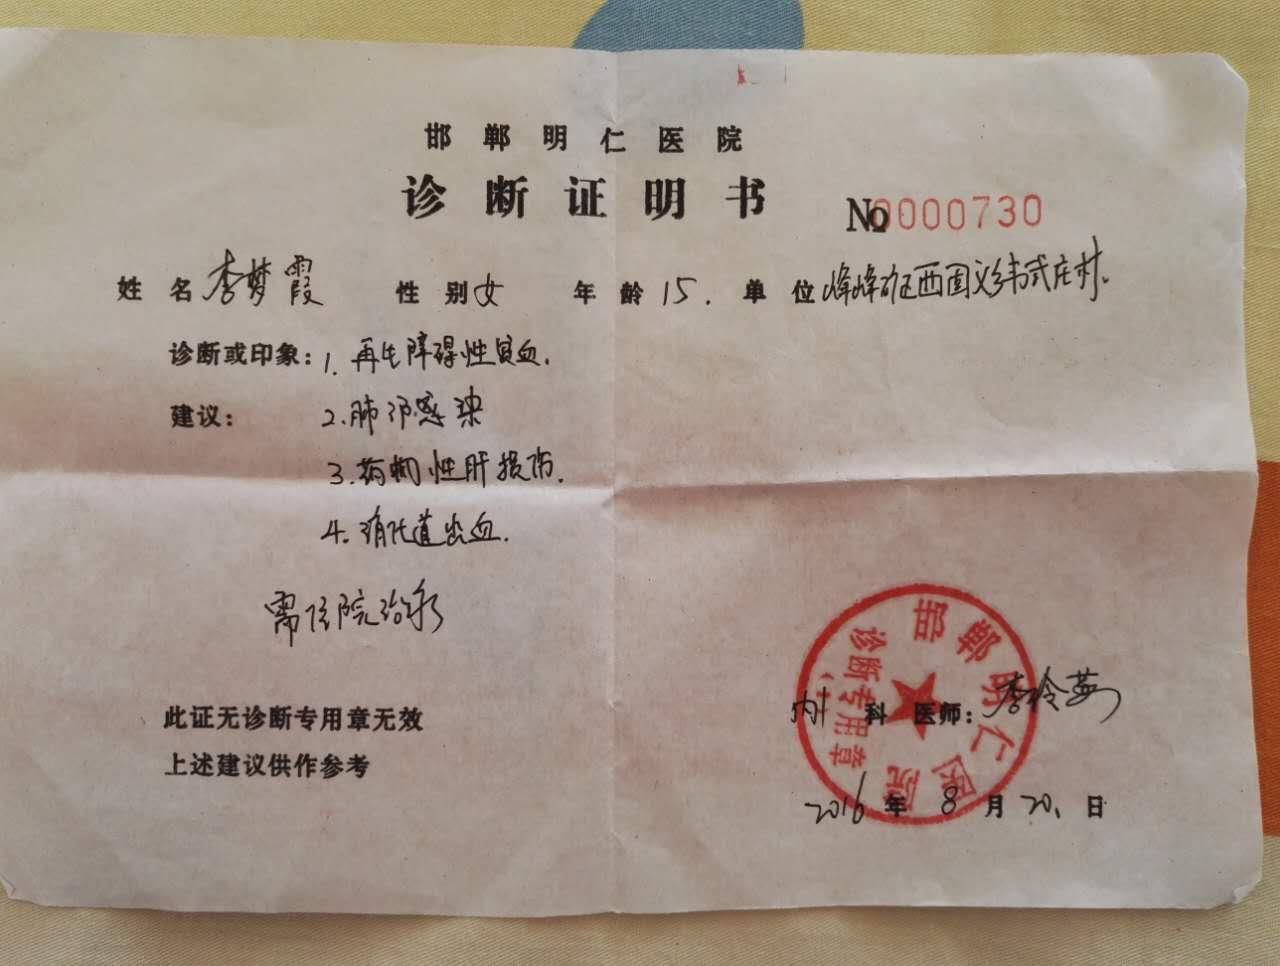 邯郸明仁医院
诊断证明书
№0000730
姓名 李梦霞 性别 女 年龄 15. 单位 峰峰矿区西固义乡韦武庄村.
诊断或印象: 1. 再生障碍性贫血.
建议: 2. 肺部感染
3. 药物性肝损伤.
4. 消化道出血.
需住院治疗
邯郸明仁医院
诊断专用章
内 科 医师: 李玲
此证无诊断专用章无效
上述建议供作参考
2016年8月20日